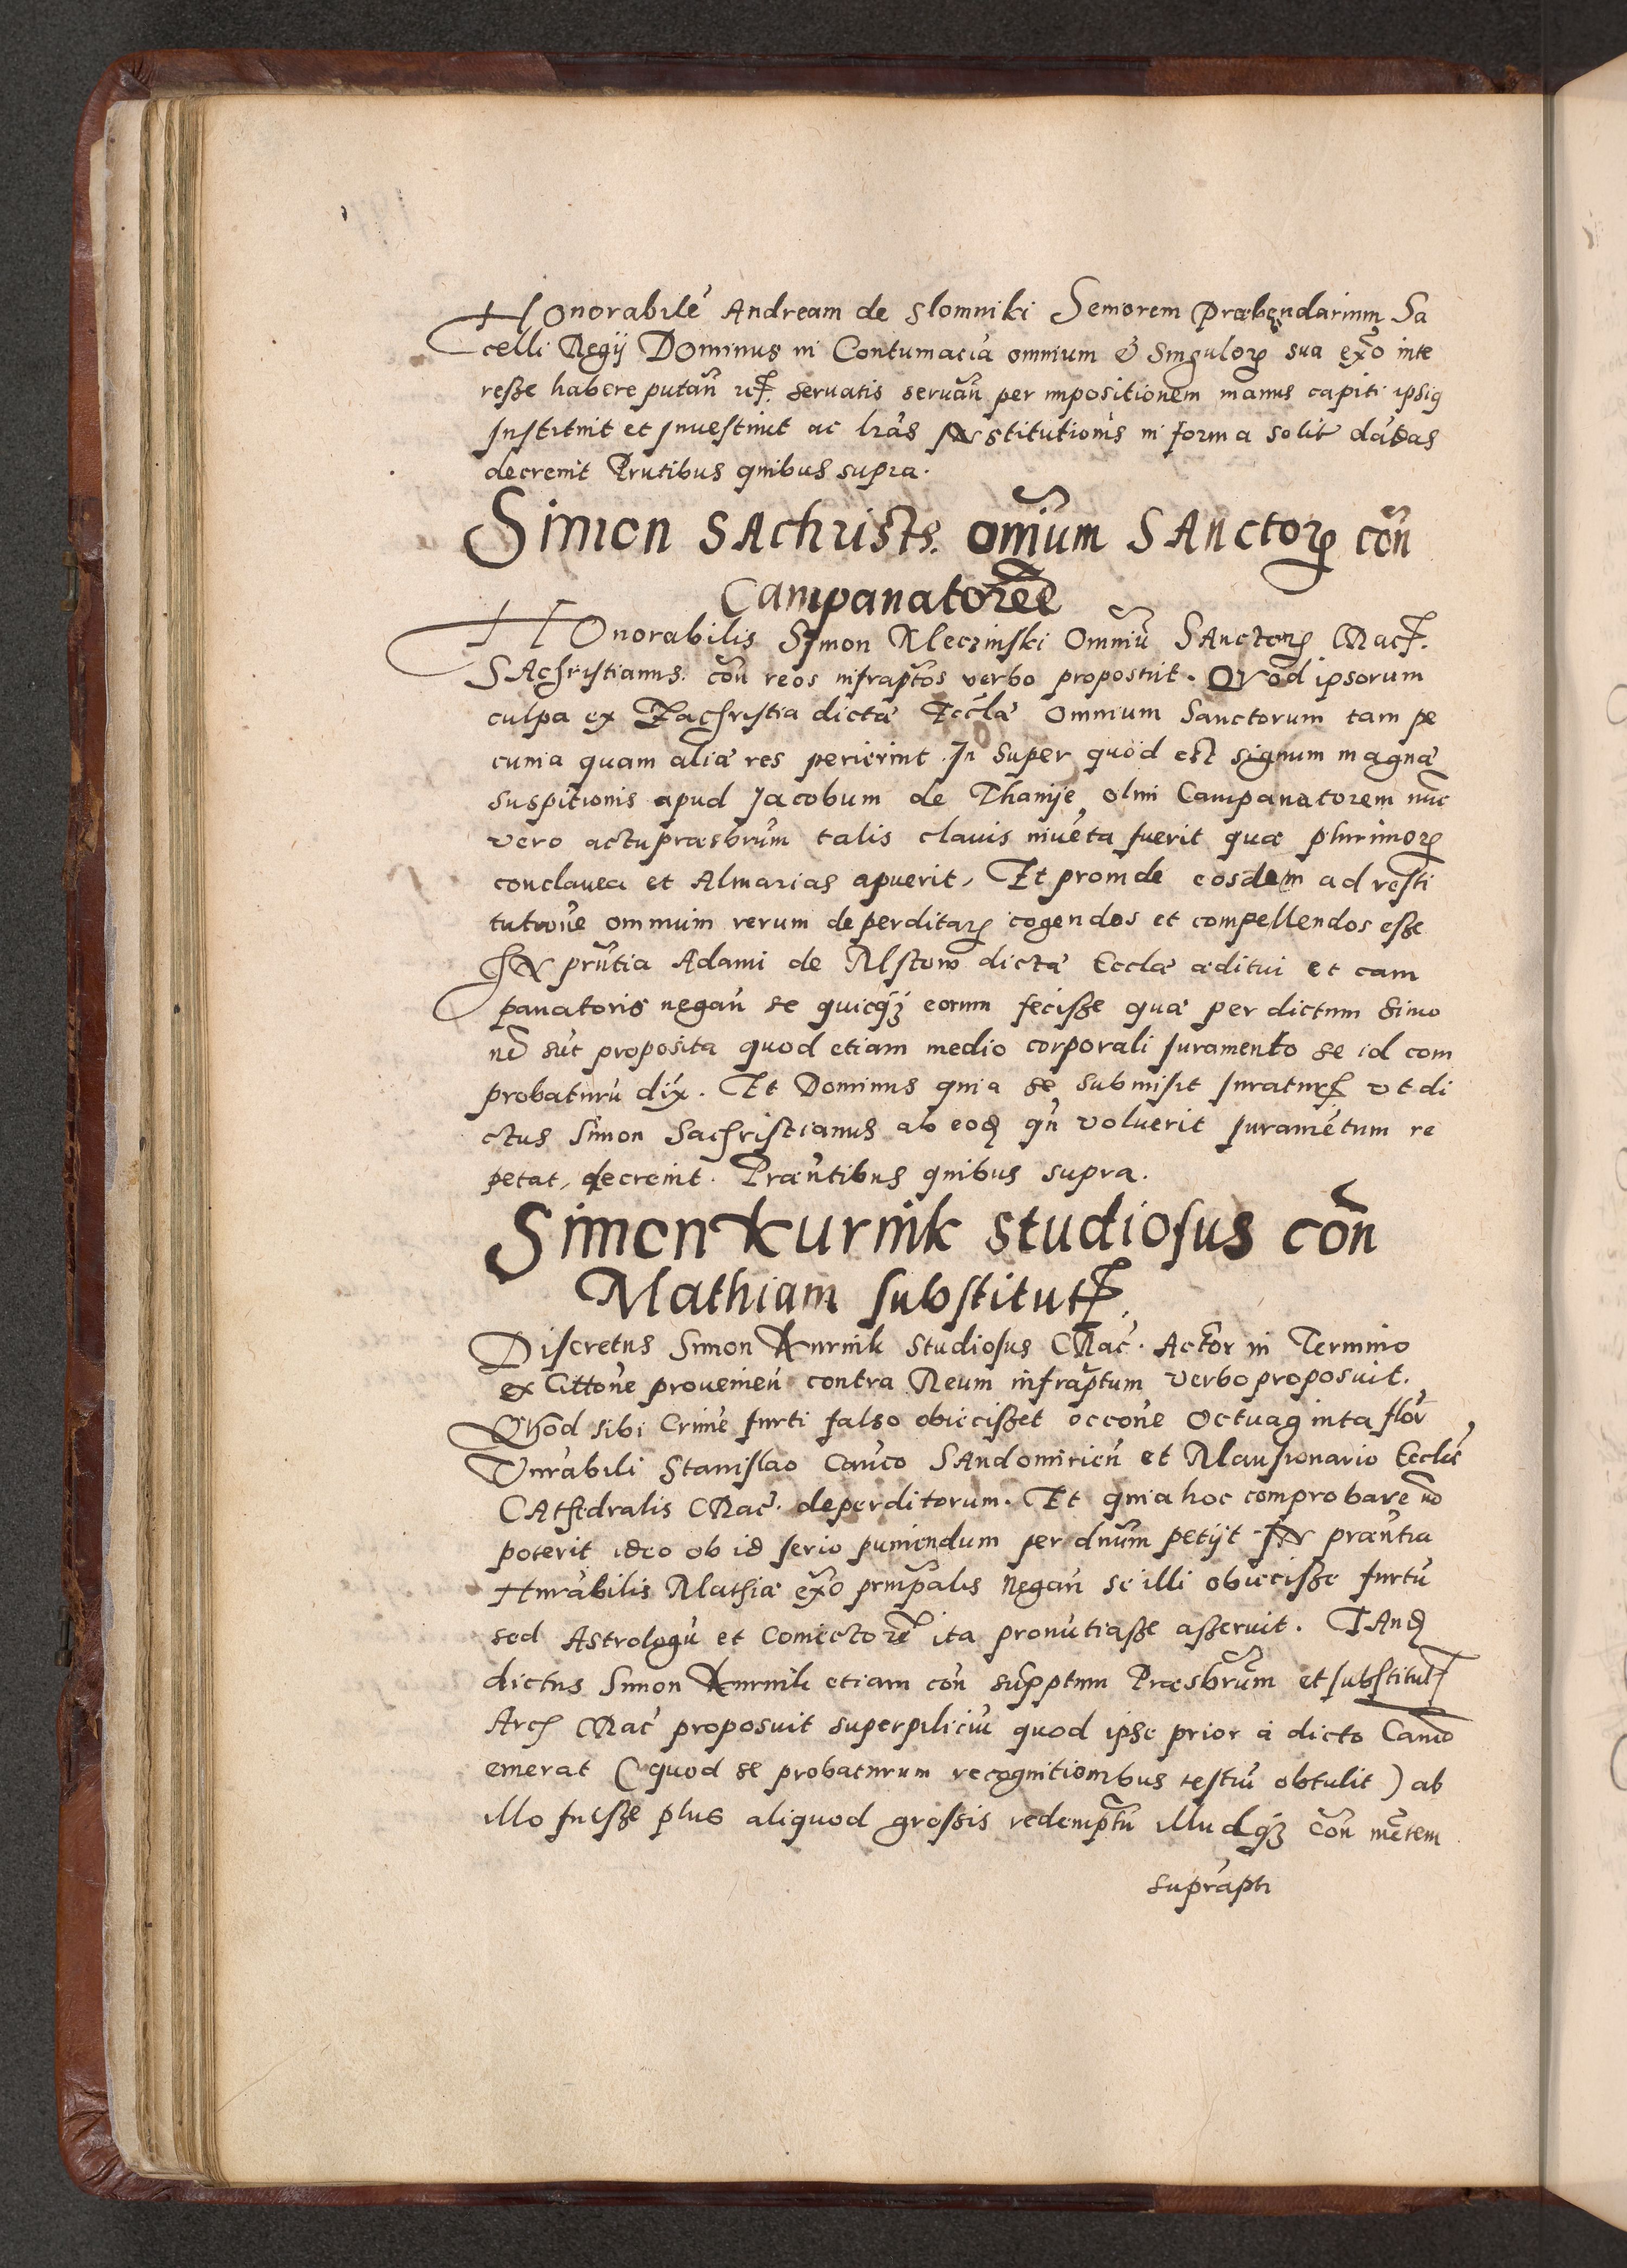 Honorabile͂ Andream de Slomniki Seniorem Præbendarium Sa
celli Regij Dominus in Contumacia omnium & Singulorꝝ sua exõ inte
resse habere putañ servatis servañ per impositionem manus capiti ipsiꝰ
Instituit et Investiuit ac lr̃as Institutionis in forma solit dandas
decreuit Pr̃ntibus quibus supra.
Simon SAchrists. om̃ium SAnctorꝝ coñ
Campanatorẽ
HOnorabilis Symon Kleczinski Omniũ SAnctorꝝ Crac.
SAchristianus coñ reos infrapt̃os verbo proposuit. QVod ipsorum
culpa ex Zachristia dictæ Eccl̃æ Omnium Sanctorum tam pe
cunia quam aliæ res perierint. In super quod est signum magnæ
suspitionis apud Jacobum de olim Campanatorem nũc
vero actu præsbr̃um talis clavis invẽta fuerit quæ plurimorꝝ
conclavea et Almarias apuerit, Et proinde eosdem ad resti
tutionẽ omnium rerum deperditarꝝ cogendos et compellendos esse
IN prñtia Adami de dictæ Eccl̃æ æditui et cam
panatoris negañ se quicqꝫ eorum fecisse quæ per dictum Simo
nẽ sũt proposita quod etiam medio corporali Iuramento se id com
probaturũ dix. Et Dominus quia se submisit ut di
ctus Simon Sachristianus ab eod qñ voluerit Iuramẽtum re
petat, decreuit. Præñtibus quibus supra.
Simon Kurnik studiosus coñ
Mathiam substitut
Discretus Simon Kurnik Studiosus Crac. Actor in Termino
ex Citt̃one prouenieñ contra Reum infrapt̃um verbo proposuit.
Quod sibi Crimẽ furti falso obiecisset occõne Octuaginta flor̃
Vnr̃abili Stanislao Cañco SAndomirieñ et Mansionario Eccl̃æ
CAthedralis Crac̃. deperditorum. Et quia hoc comprobare nõ
poterit ideo ob id serio puniendum per dñum petijt IN præñtia
Hnr̃abilis Mathiæ exõ prinp̃alis negañ se illi obiecisse furtũ
sed Astrologũ et Coniectorẽ ita pronũtiasse asseruit. TAnd
dictus Simon Kurnik etiam coñ supptum Præsbr̃um et substitut
Arch Crac̃ proposuit superpiliciũ quod ipse prior à dicto Cañco
emerat (quod se probaturum recognitionibus testiũ obtulit) ab
illo fuisse plus aliquod grossis redempt̃ũ illudqꝫ coñ mẽtem
supr̃apti